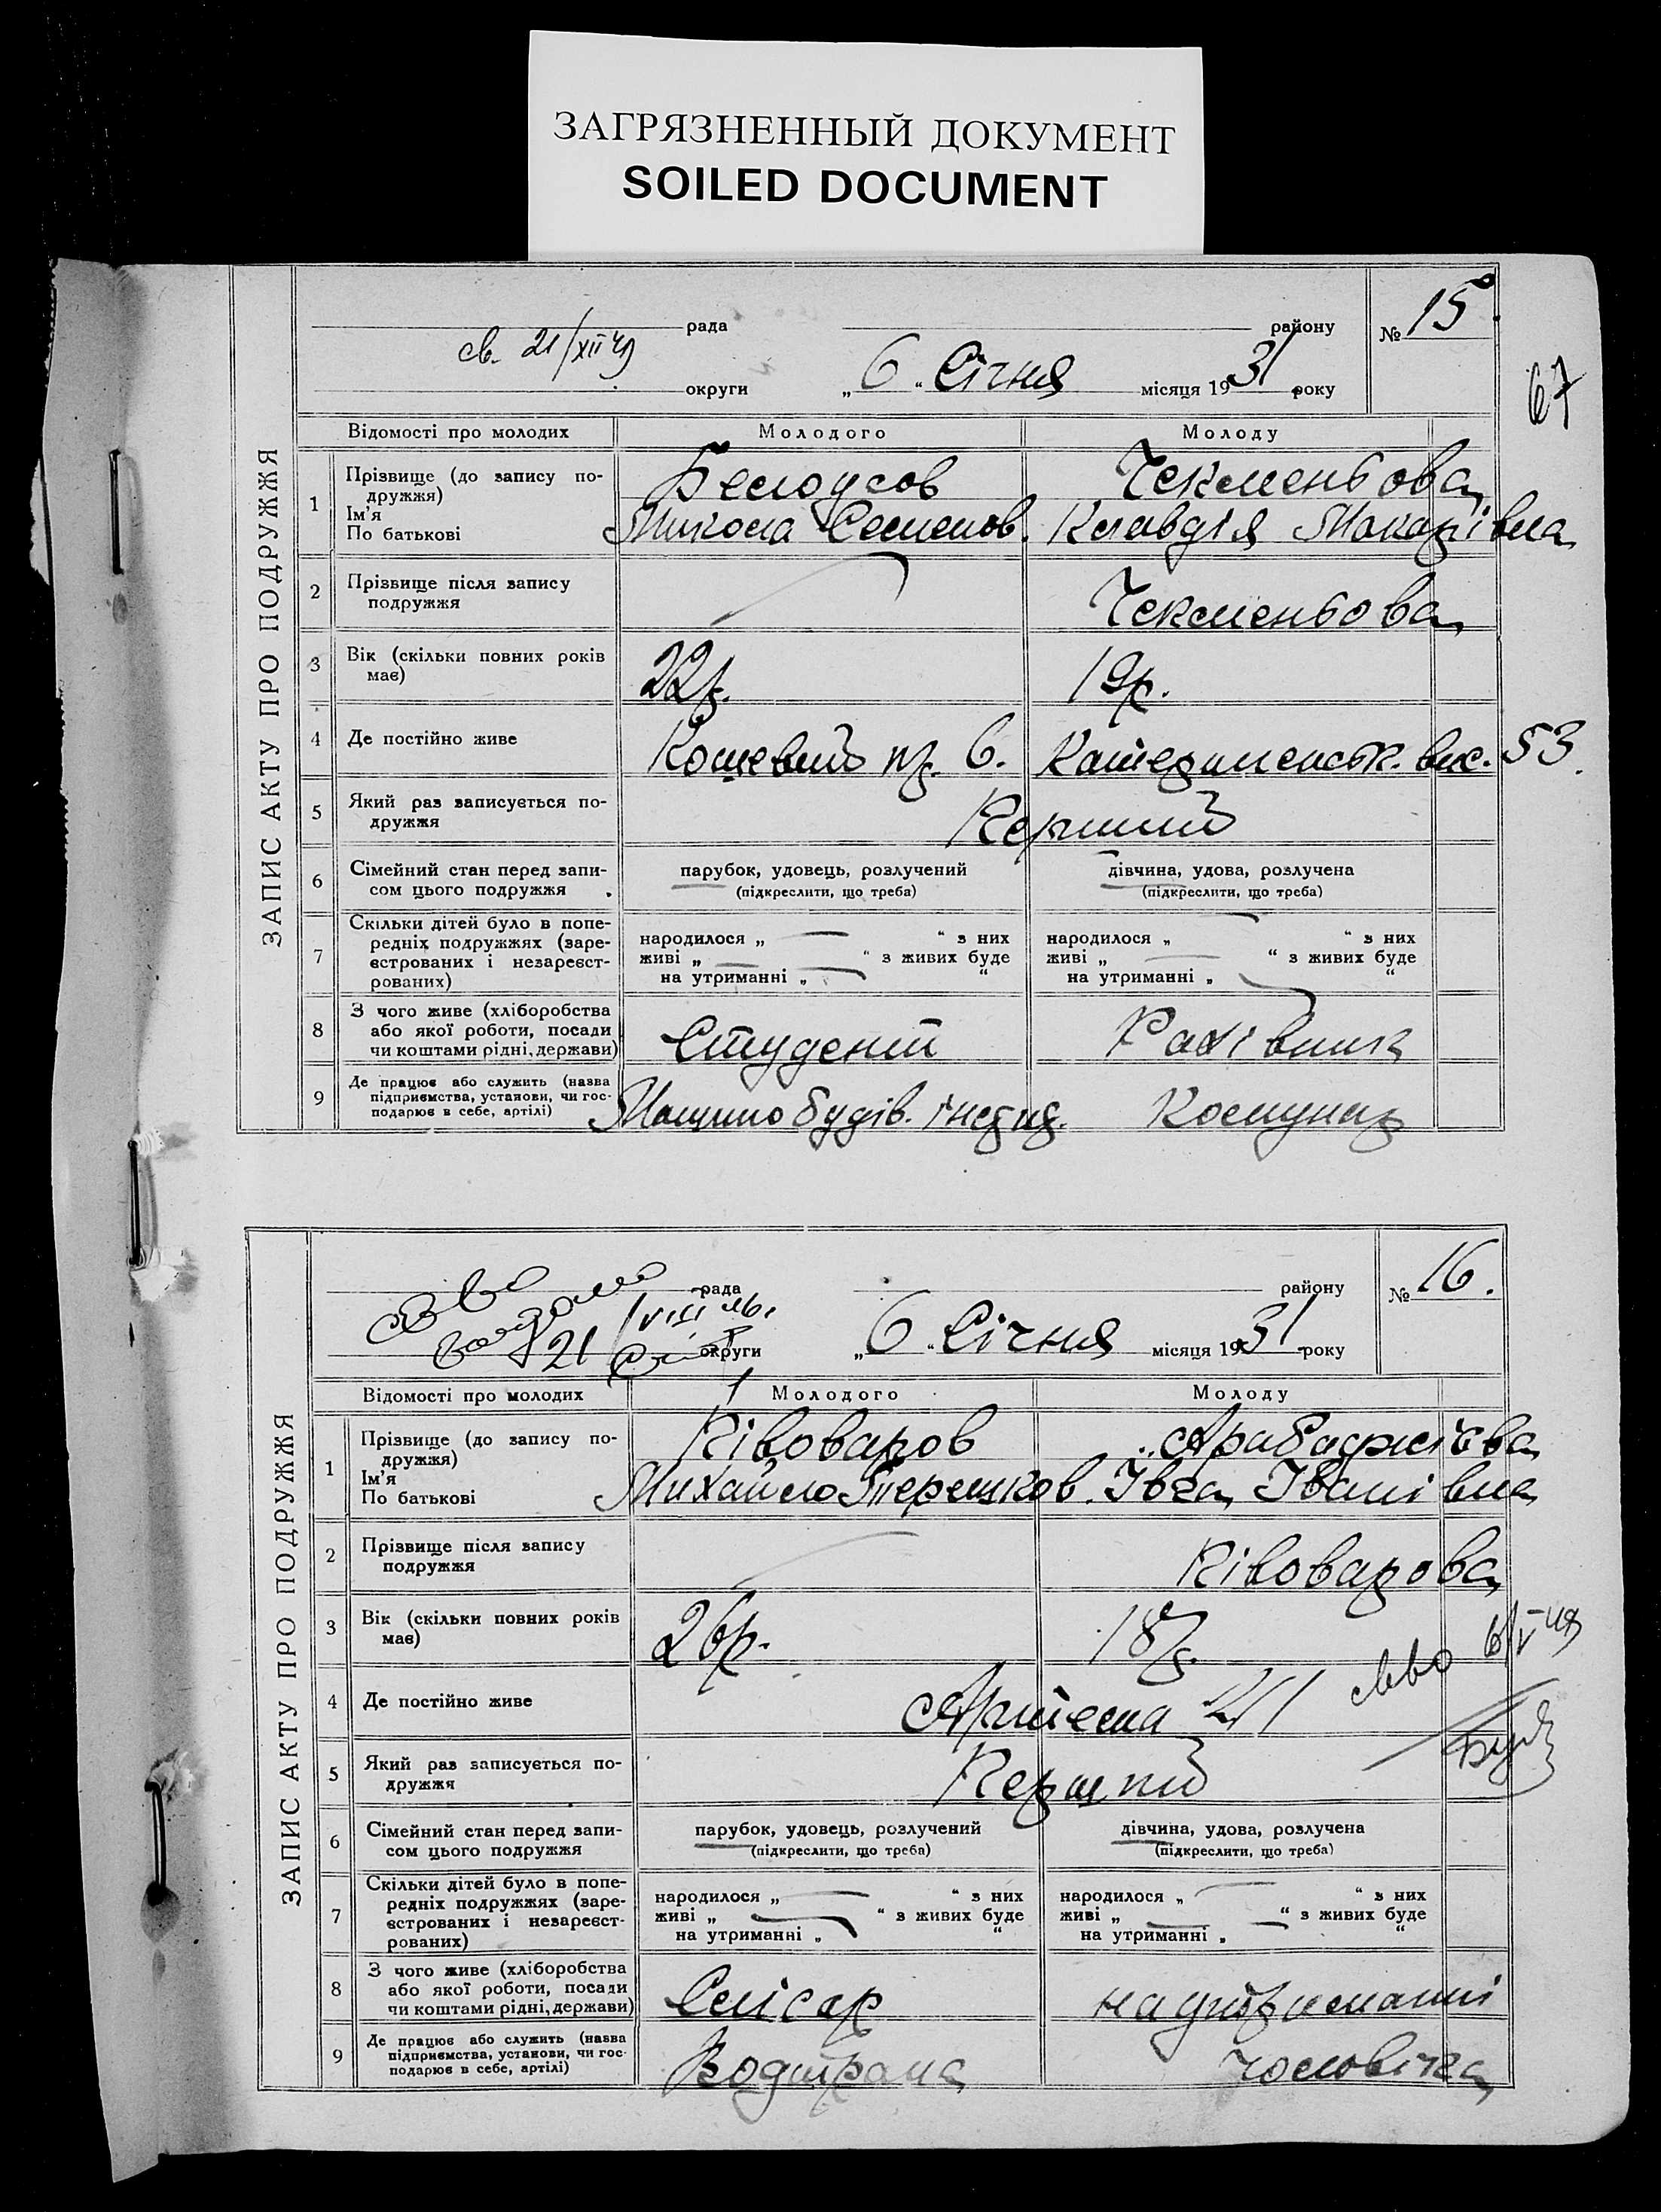 ЗАГРЯЗНЕННЫЙ ДОКУМЕНТ
SOILED DOCUMENT
ЗАПИС АКТУ ПРО ПОДРУЖЖЯ
рада району № 15
св. 21/XII 49
округи „6“ Січня місяця 1931 року
67
Відомості про молодих Молодого Молоду
1 Прізвище (до запису по-
дружжя)
Ім'я
По батькові
Белоусов Чекменьова
Микола Семенов. Клавдія Макарівна
2 Прізвище після запису
подружжя
Чекменьова
3 Вік (скільки повних років
має)
22р. 19р.
4 Де постійно живе Кошевий пр. 6. Катериненськ. вис. 53.
5 Який раз записується по-
дружжя
Перший
6 Сімейний стан перед запи-
сом цього подружжя
парубок, удовець, розлучений дівчина, удова, розлучена
(підкреслити, що треба) (підкреслити, що треба)
7 Скільки дітей було в попе-
редніх подружжях (заре-
єстрованих і незареєст-
рованих)
народилося „ “ з них народилося „ “ з них
живі „ “ з живих буде живі „ “ з живих буде
на утриманні „ “ на утриманні „ “
8 З чого живе (хліборобства
або якої роботи, посади
чи коштами рідні, держави)
Студент Рахівниця
9 Де працює або служить (назва
підприємства, установи, чи гос-
подарює в себе, артілі)
Машинобудів. Комунар
ЗАПИС АКТУ ПРО ПОДРУЖЖЯ
рада району № 16.
21/VIII
округи „6“ Січня місяця 1931 року
Відомості про молодих Молодого Молоду
1 Прізвище (до запису по-
дружжя)
Ім'я
По батькові
Півоваров Арабаджієва
Михайло Івга Іванівна
2 Прізвище після запису
подружжя
Півоварова
3 Вік (скільки повних років
має)
26р. 18р.
4 Де постійно живе Артема
5 Який раз записується по-
дружжя
Перший
6 Сімейний стан перед запи-
сом цього подружжя
парубок, удовець, розлучений дівчина, удова, розлучена
(підкреслити, що треба) (підкреслити, що треба)
7 Скільки дітей було в попе-
редніх подружжях (заре-
єстрованих і незареєст-
рованих)
народилося „ “ з них народилося „ “ з них
живі „ “ з живих буде живі „ “ з живих буде
на утриманні „ “ на утриманні „ “
8 З чого живе (хліборобства
або якої роботи, посади
чи коштами рідні, держави)
Слісар на утриманні
9 Де працює або служить (назва
підприємства, установи, чи гос-
подарює в себе, артілі)
Водтрана чоловіка